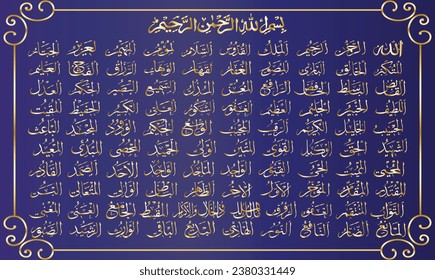 بسم الله الرحمن الرحيم
الله الرحمن الرحيم الملك القدوس السلام المؤمن المهيمن العزيز الجبار
المتكبر الخالق البارئ المصور الغفار القهار الوهاب الرزاق الفتاح العليم
القابض الباسط الخافض الرافع المعز المذل السميع البصير الحكم العدل
اللطيف الخبير الحليم العظيم الغفور الشكور العلي الكبير الحفيظ المقيت
الحسيب الجليل الكريم الرقيب المجيب الواسع الحكيم الودود المجيد الباعث
الشهيد الحق الوكيل القوي المتين الولي الحميد المحصي المبدئ المعيد
المحيي المميت الحي القيوم الواجد الماجد الواحد الأحد الصمد القادر
المقتدر المقدم المؤخر الأول الآخر الظاهر الباطن الوالي المتعالي البر
التواب المنتقم العفو الرؤوف مالك الملك ذو الجلال والإكرام المقسط الجامع الغني المغني
المانع الضار النافع النور الهادي البديع الباقي الوارث الرشيد الصبور
shutterstock.com · 2380331449